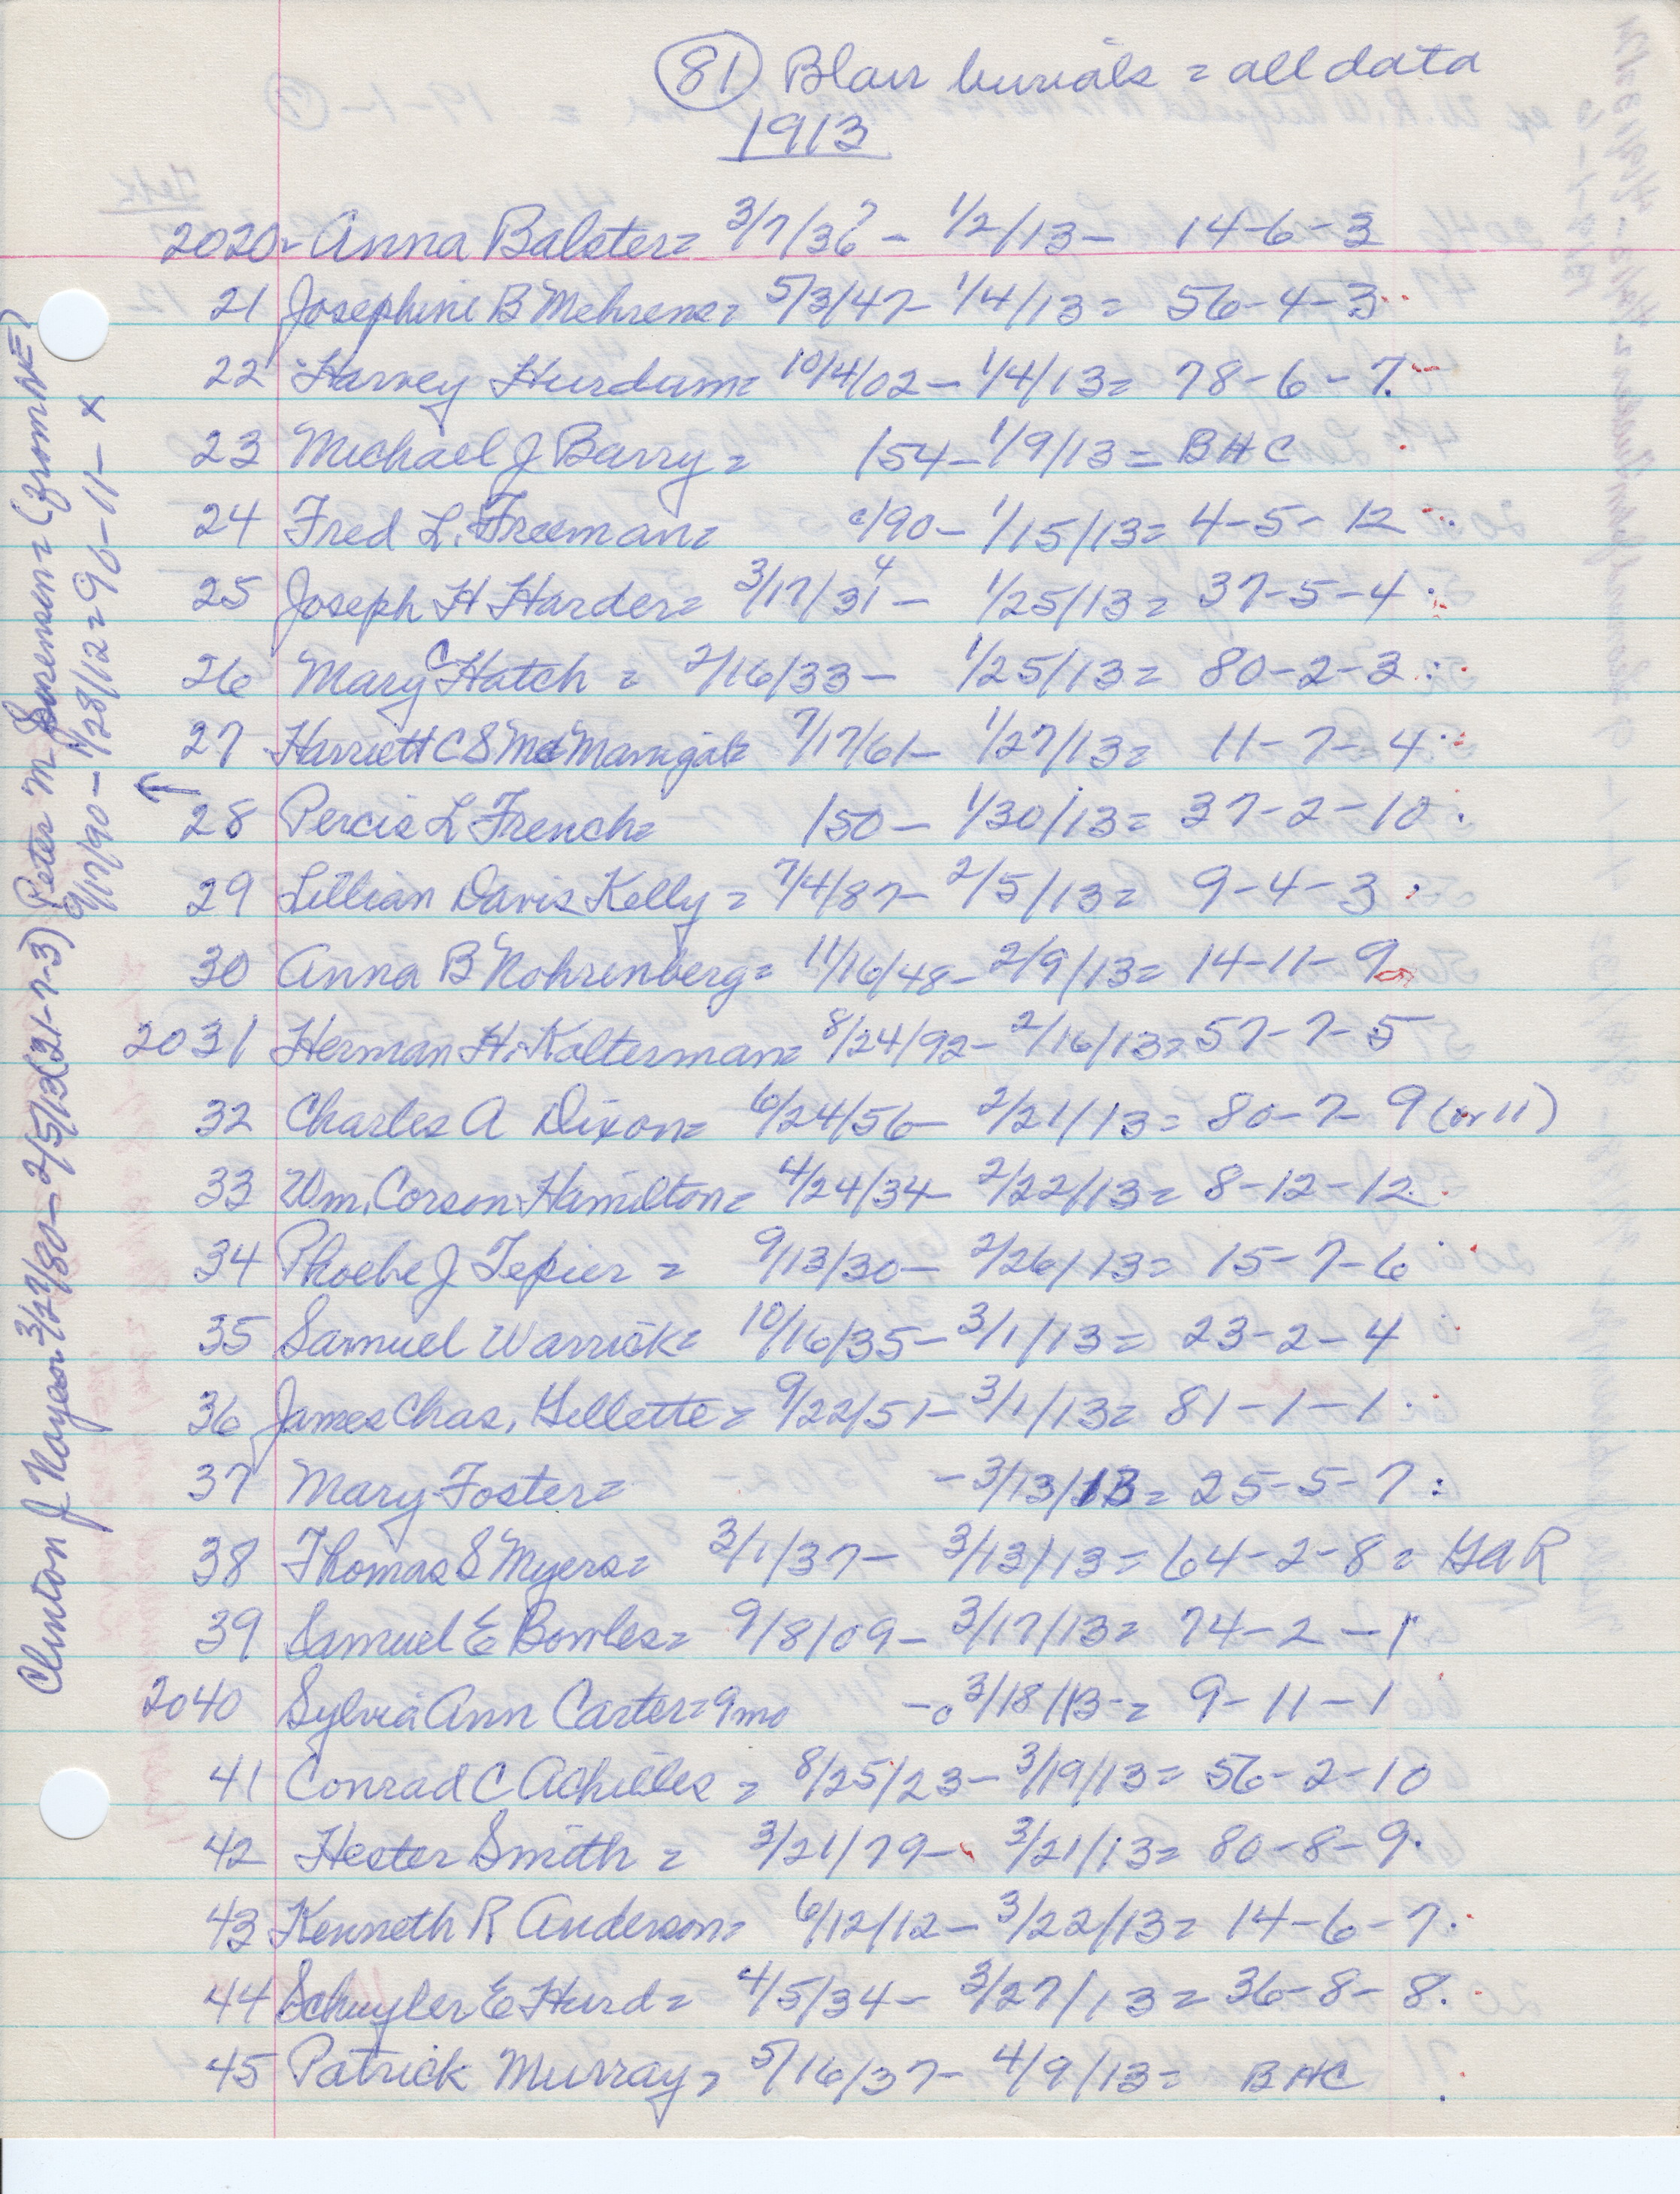 81 Blair burials = all data
1913
2020 - Anna Balster = 3/7/36? - 1/2/13 - 14-6-3
21 Josephine B Mehrens = 5/3/47 - 1/4/13 = 56-4-3
22 Harvey Hurdum = 10/4/02 - 1/4/13 = 78-6-7
23 Michael J Barry = /54 - 1/9/13 = BHC
24 Fred L. Freeman = c/90 - 1/15/13 = 4-5-12
25 Joseph H Harder = 3/17/31 4 - 1/25/13 = 37-5-4
26 Mary C Hatch = 2/16/33 - 1/25/13 = 80-2-3
27 Harriett C S McManigal = 7/17/61 - 1/27/13 = 11-7-4
28 Percis L French = /50 - 1/30/13 = 37-2-10
29 Lillian Davis Kelly = 7/4/87 - 2/5/13 = 9-4-3
30 Anna B Rohrenberg = 11/16/48 - 2/9/13 = 14-11-9
2031 Herman H. Kolterman = 8/24/92 - 2/16/13 = 57-7-5
32 Charles A Dixon = 6/24/56 - 2/21/13 = 80-7-9 (or 11)
33 Wm. Corson Hamilton = 4/24/34 - 2/22/13 = 8-12-12
34 Phoebe J Tepier = 9/13/30 - 2/26/13 = 15-7-6
35 Samuel Warrick = 10/16/35 - 3/1/13 = 23-2-4
36 James Chas. Gillette = 9/22/51 - 3/1/13 = 81-1-1
37 Mary Foster = - 3/13/13 = 25-5-7
38 Thomas S Myers = 3/1/37 - 3/13/13 = 64-2-8 = GAR
39 Samuel E Bowles = 9/8/09 - 3/17/13 = 74-2-1
2040 Sylvia Ann Carter = 9mo - 3/18/13 - = 9-11-1
41 Conrad C Achilles = 8/25/23 - 3/19/13 = 56-2-10
42 Hester Smith = 3/21/79 - 3/21/13 = 80-8-9
43 Kenneth R Anderson = 6/12/12 - 3/22/13 = 14-6-7
44 Schuyler E Hurd = 4/5/34 - 3/27/13 = 36-8-8
45 Patrick Murray = 5/16/37 - 4/9/13 = BHC
Clinton J Noyes = 3/27/80 - 2/5/13 (21-7-3) Peter M Sorensen = (from NE?)
9/17/90 - 1/28/12 = 96-11-x